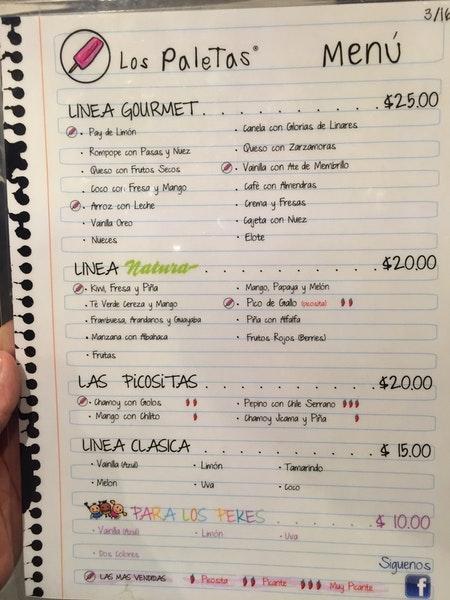 3/16
Los Paletas® Menú
LINEA GOURMET. . . . . . . . . . . . . . . $25.00
• Pay de Limón
• Canela con Glorias de Linares
• Rompope con Pasas y Nuez
• Queso con Zarzamoras
• Queso con Frutos Secos
• Vainilla con Ate de Membrillo
• Coco con Fresa y Mango
• Café con Almendras
• Arroz con Leche
• Crema y Fresas
• Vainilla Oreo
• Cajeta con Nuez
• Nueces
• Elote
LINEA Natura . . . . . . . . . . . . . . . $20.00
• Kiwi, Fresa y Piña
• Mango, Papaya y Melón
• Té Verde Cereza y Mango
• Pico de Gallo (picosita)
• Frambuesa, Arandanos y Guayaba
• Piña con Alfalfa
• Manzana con Albahaca
• Frutos Rojos (Berries)
• Frutas
LAS PICOSITAS . . . . . . . . . . . . $20.00
• Chamoy con Golos
• Pepino con Chile Serrano
• Mango con Chilito
• Chamoy Jicama y Piña
LINEA CLASICA . . . . . . . . . . . . . $ 15.00
• Vainilla (Azul)
• Limón
• Tamarindo
• Melon
• Uva
• Coco
PARA LOS PEKES . . . . . . . . $ 10.00
• Vainilla (Azul)
• Limón
• Uva
• Dos Colores
Siguenos
LAS MAS VENDIDAS Picosita Picante Muy Picante
f